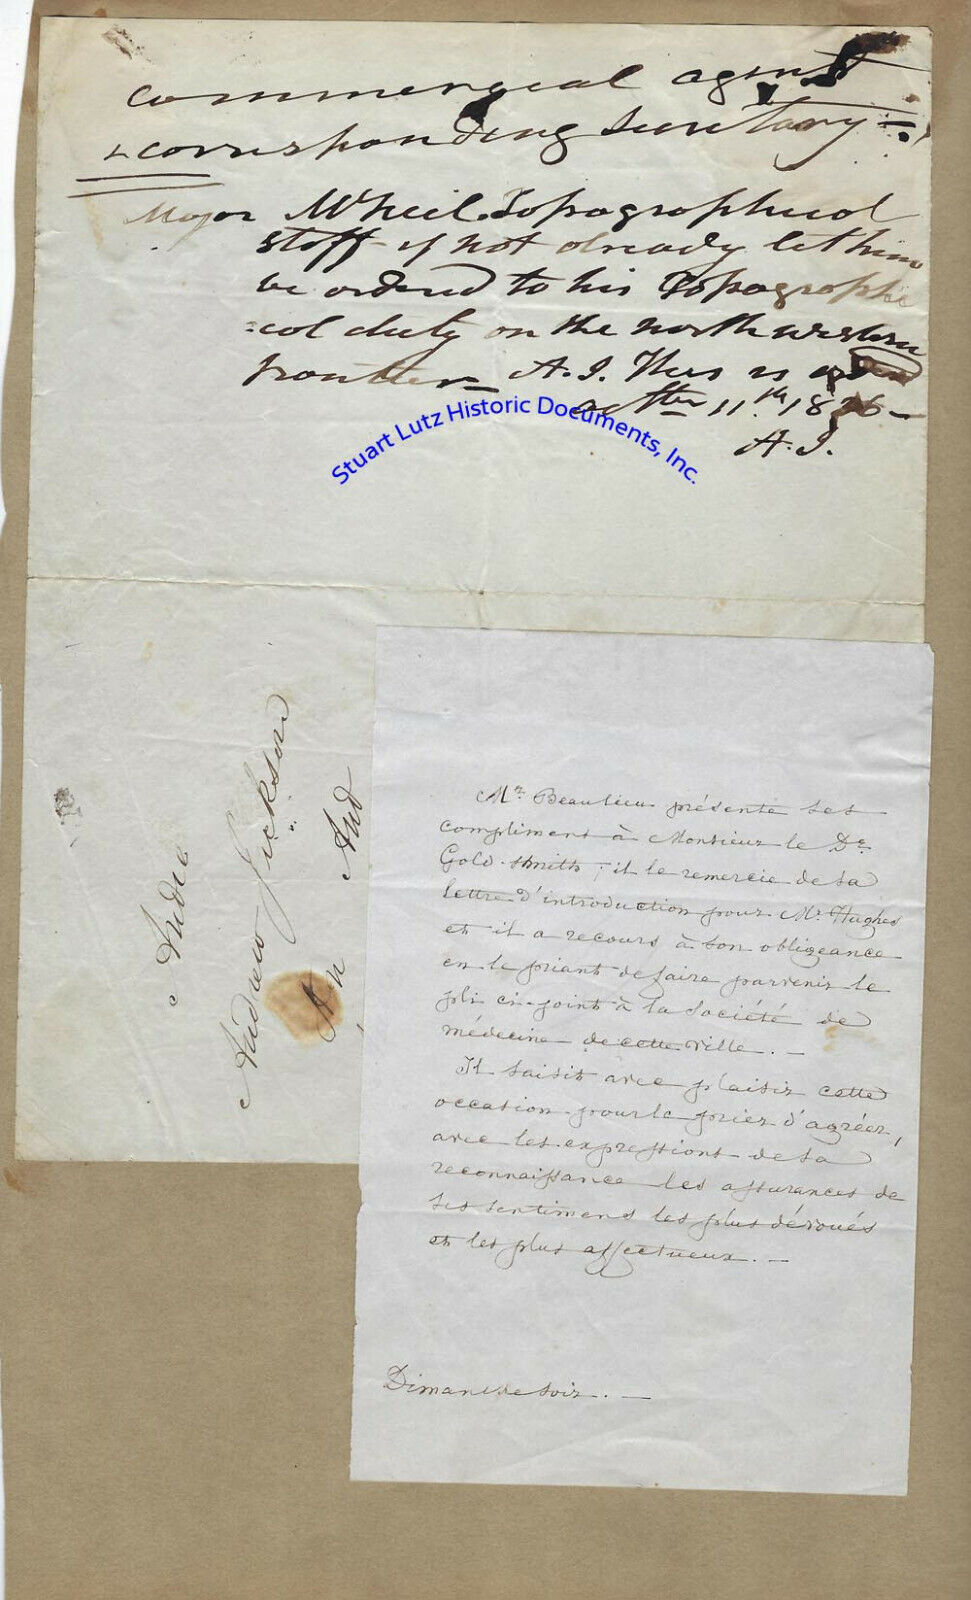 commercial agent
& corresponding Secretary —.
Major McNeil. Topographical
staff — if not already let him
be ordered to his Topographi
-cal duty on the north western
frontier — A. J. This is
11th 1836 —
A. J.
Stuart Lutz Historic Documents, Inc.
Andre
Andrew Jackson
An
And
Mr. Beaulieu présente ses
compliments à Monsieur le Dr.
Gold-smith; il le remercie de sa
lettre d'introduction pour Mr. Hughes
et il a recours à son obligeance
en le priant de faire parvenir le
pli ci-joint à la Société de
médecine de cette ville. —
Il saisit avec plaisir cette
occasion pour le prier d'agréer,
avec les expressions de sa
reconnaissance les assurances de
ses sentimens les plus dévoués
et les plus affectueux. —
Dimanche soir. —